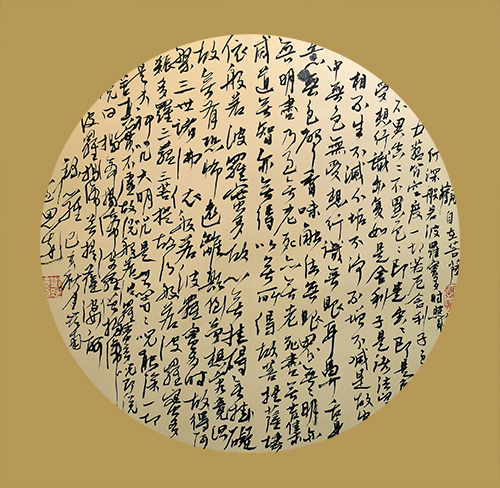 觀自在菩薩
行深般若波羅蜜時照見
五蘊皆空度一切苦厄舍利子色
不異空空不異色色即是空空即是色
受想行識亦復如是舍利子是諸法空
相不生不滅不垢不淨不增不減是故空
中無色無受想行識無眼耳鼻舌身
意無色聲香味觸法無眼界無無明亦
無明盡乃至無老死亦無老死盡無苦集
滅道無智亦無得以無所得故菩提薩埵
依般若波羅蜜多故心無罣礙無罣礙
故無有恐怖遠離顛倒夢想究竟涅
槃三世諸佛依般若波羅蜜多時故得阿
耨多羅三藐三菩提故知般若波羅蜜多
是大神咒是大明咒是無上咒能除一切
苦真實不虛故說般若波羅蜜多咒即說
咒曰揭諦揭諦波羅揭諦
波羅僧揭諦菩提薩婆訶
己亥秋月